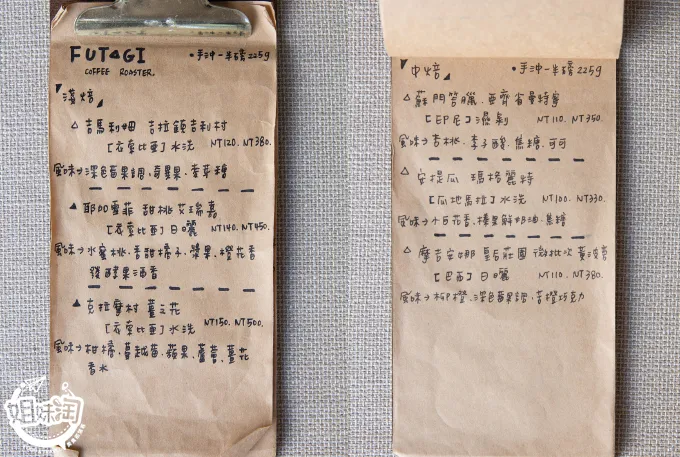 FUTAGI
COFFEE ROASTER.
•手沖一半磅225g
淺焙
△ 吉馬利姆 吉拉鎮吉利村
[衣索比亞]水洗 NT120. NT380.
風味→深色莓果調、夏果、麥芽糖
△ 耶加雪菲 甜桃艾瑞嘉
[衣索比亞]日曬 NT140. NT450.
風味→水蜜桃、香甜橘子、漿果、橙花香
發酵果酒香
△ 克拉摩村 薑之花
[衣索比亞]水洗 NT150. NT500.
風味→柑橘、蔓越莓、蘋果、蘆薈、薑花
香水
中焙
•手沖一半磅225g
△ 蘇門答臘.亞齊省曼特寧
[印尼]濕剝 NT110. NT350.
風味→杏桃.李子醋.焦糖.可可
△ 安提瓜 瑪格麗特
[瓜地馬拉]水洗 NT100. NT330.
風味→小白花香、榛果鮮奶油、焦糖
△ 摩吉安娜 皇后莊園 微批次 黃波旁
[巴西]日曬 NT110. NT380.
風味→柳橙、深色莓果調、香橙巧克力
姐妹淘